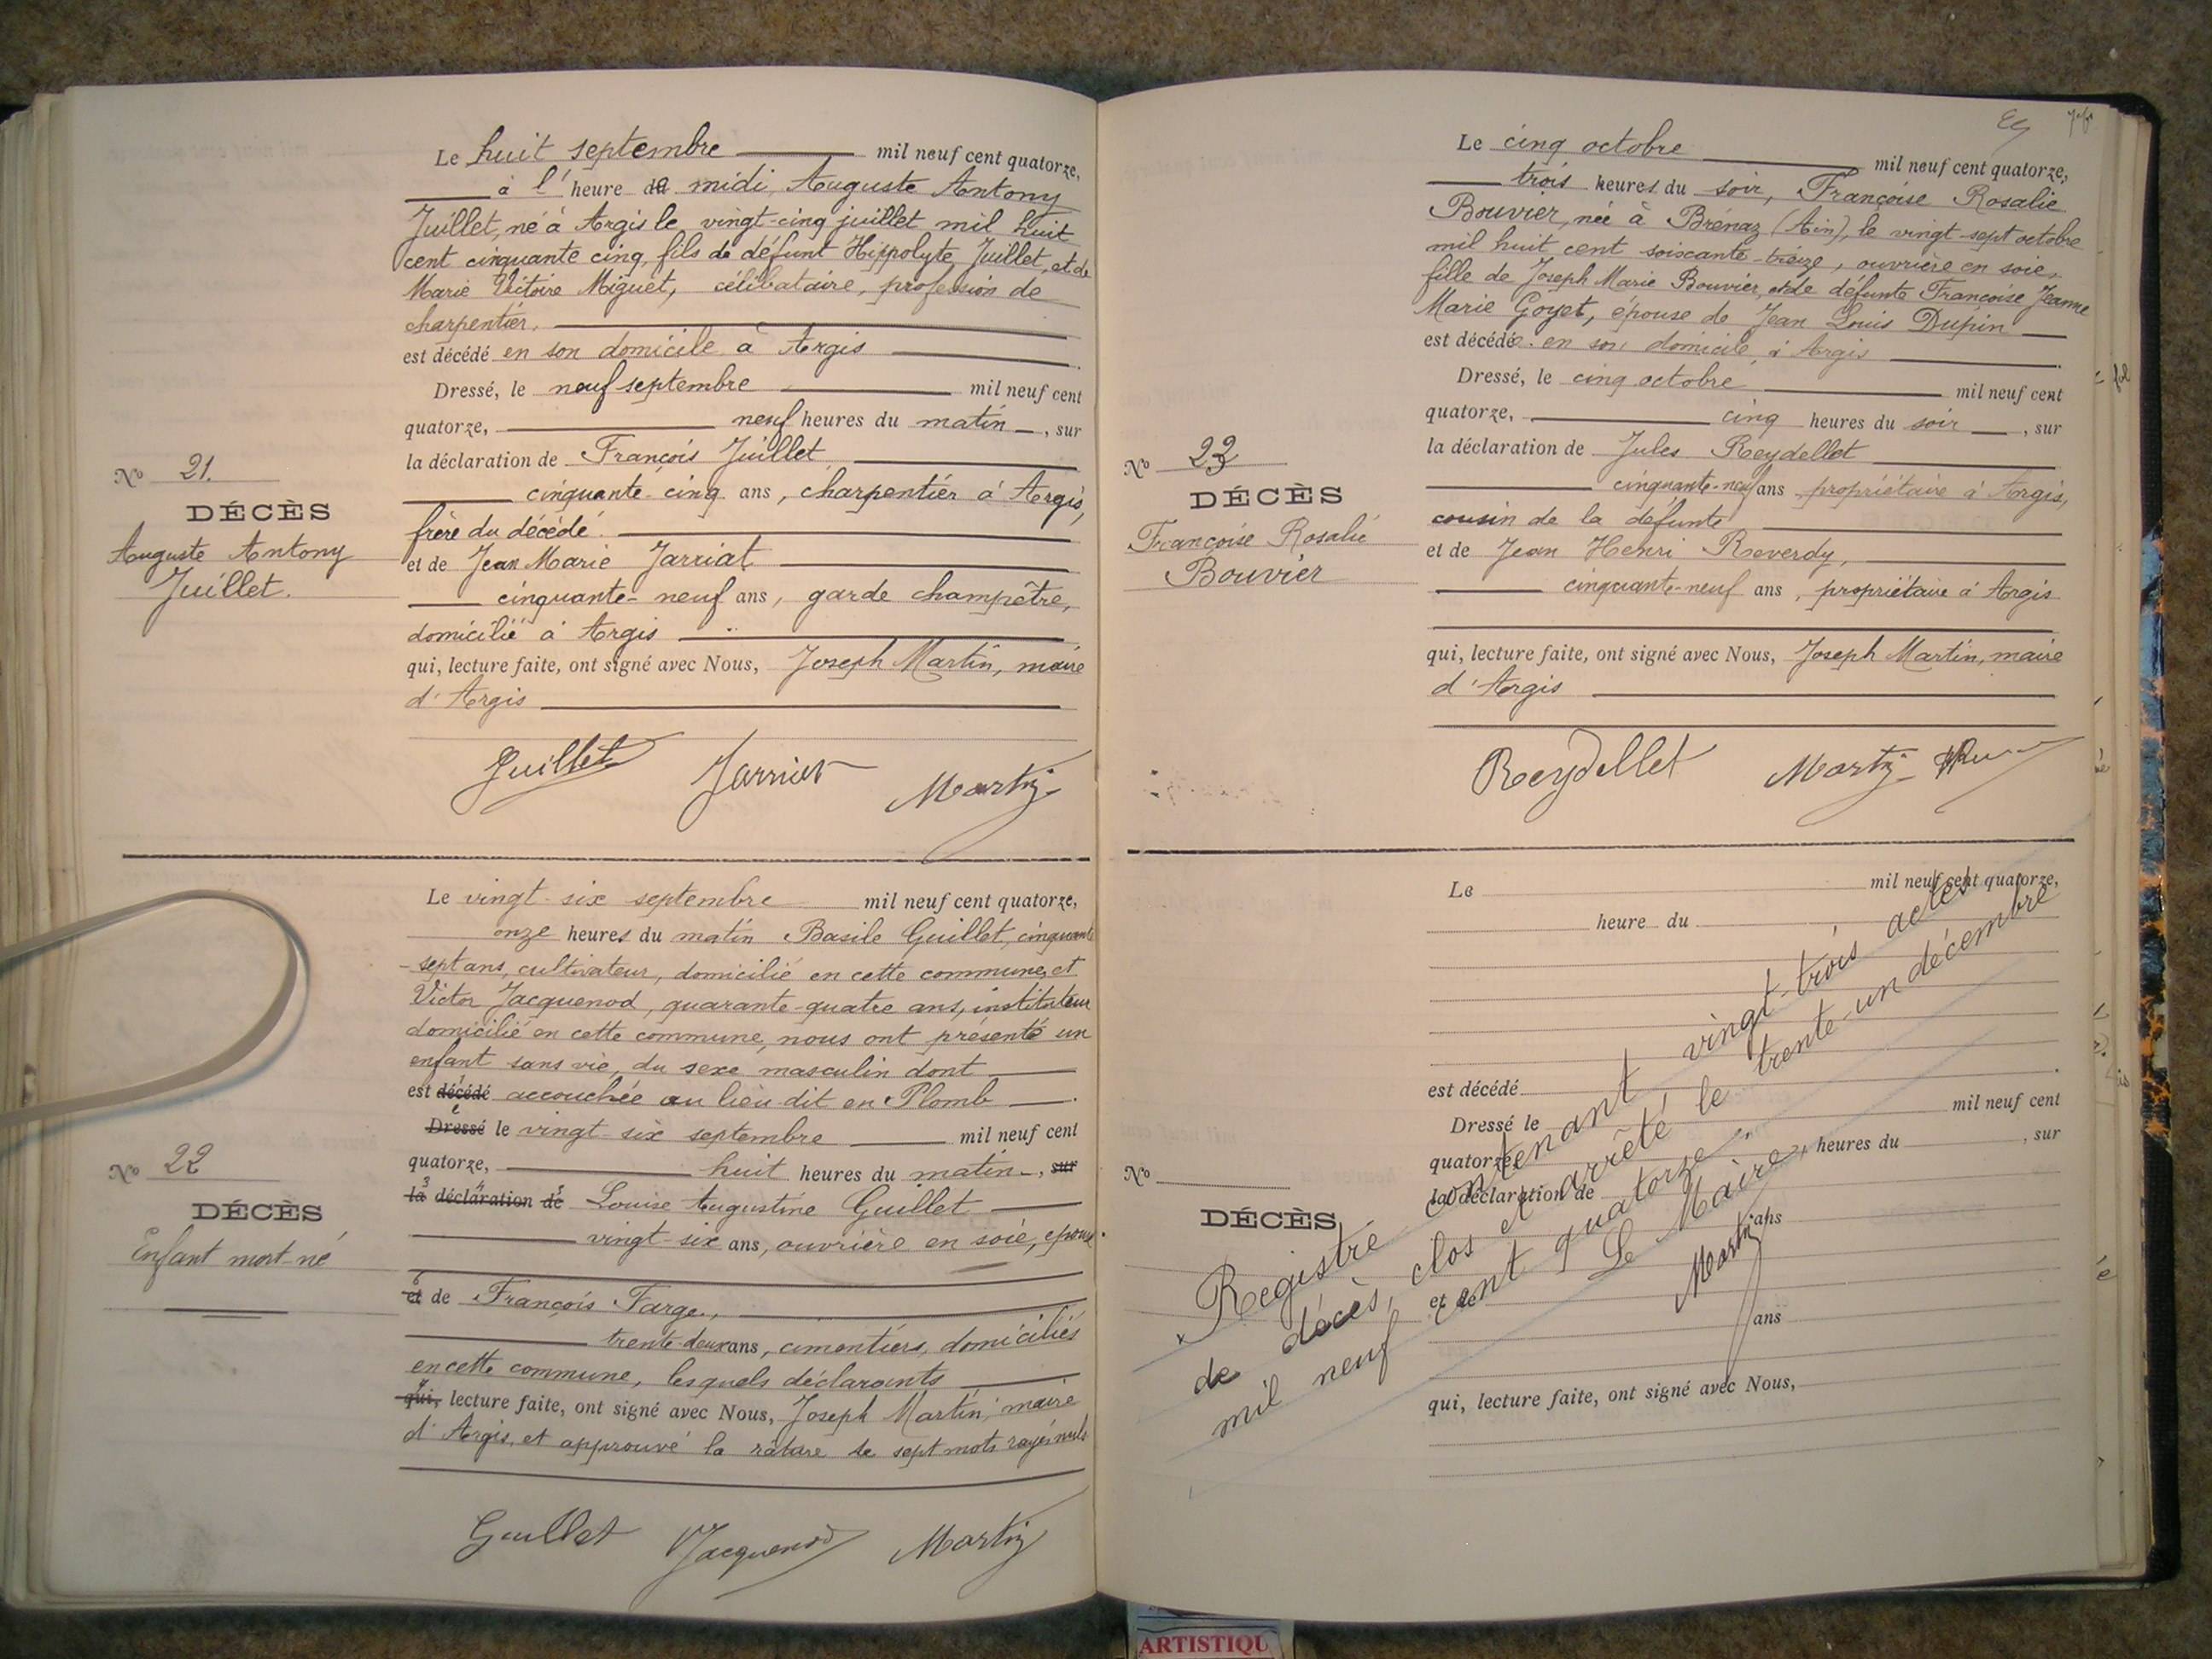 Le huit septembre mil neuf cent quatorze,
à l'heure de midi, Auguste Antony
Juillet, né à Argis le vingt-cinq juillet mil huit
cent cinquante cinq, fils de défunt Hippolyte Juillet, et de
Marie Victoire Miguet, célibataire, profession de
charpentier.
est décédé en son domicile à Argis
Dressé, le neuf septembre mil neuf cent
quatorze, neuf heures du matin, sur
No 21.
la déclaration de François Juillet
cinquante-cinq ans, charpentier à Argis,
DÉCÈS
frère du décédé.
Auguste Antony
Juillet.
et de Jean Marie Jarriat
cinquante-neuf ans, garde champêtre,
domicilié à Argis
qui, lecture faite, ont signé avec Nous, Joseph Martin, maire
d'Argis
Juillet Jarriat Martin
Le vingt-six septembre mil neuf cent quatorze,
onze heures du matin Basile Guillet, cinquante
-sept ans, cultivateur, domicilié en cette commune, et
Victor Jacquenod, quarante-quatre ans, instituteur
domicilié en cette commune, nous ont présenté un
enfant sans vie, du sexe masculin dont
est décédé accouchée au lieu dit en Plomb
Dressé le vingt-six septembre mil neuf cent
No 22
quatorze, huit heures du matin, sur
la déclaration de Louise Augustine Guillet
DÉCÈS
Enfant mort-né
vingt-six ans, ouvrière en soie, épouse
et de François Farge,
trente-deux ans, cimentiers, domiciliés
en cette commune, lesquels déclarants
qui, lecture faite, ont signé avec Nous, Joseph Martin, maire
d'Argis, et approuvé la rature de sept mots rayés nuls
Guillet VJacquenod Martin
Le cinq octobre mil neuf cent quatorze,
trois heures du soir, Françoise Rosalie
Bouvier, née à Brénaz (Ain), le vingt-sept octobre
mil huit cent soixante-treize, ouvrière en soie,
fille de Joseph Marie Bouvier, et de défunte Françoise Jeanne
Marie Goyet, épouse de Jean Louis Dupin
est décédée en son domicile à Argis
Dressé, le cinq octobre mil neuf cent
quatorze, cinq heures du soir, sur
No 23
la déclaration de Jules Reydellet
DÉCÈS
cinquante-neuf ans propriétaire à Argis,
cousin de la défunte
Françoise Rosalie
Bouvier
et de Jean Henri Reverdy,
cinquante-neuf ans, propriétaire à Argis
qui, lecture faite, ont signé avec Nous, Joseph Martin, maire
d'Argis
Reydellet Martin
Le mil neuf cent quatorze,
heure du
est décédé
Dressé le mil neuf cent
quatorze, heures du , sur
No
la déclaration de
DÉCÈS
ans
et de
ans
qui, lecture faite, ont signé avec Nous,
Registre contenant vingt-trois actes
de décès, clos et arrêté le trente-un décembre
mil neuf cent quatorze.
Le Maire,
Martin
ARTISTIQU